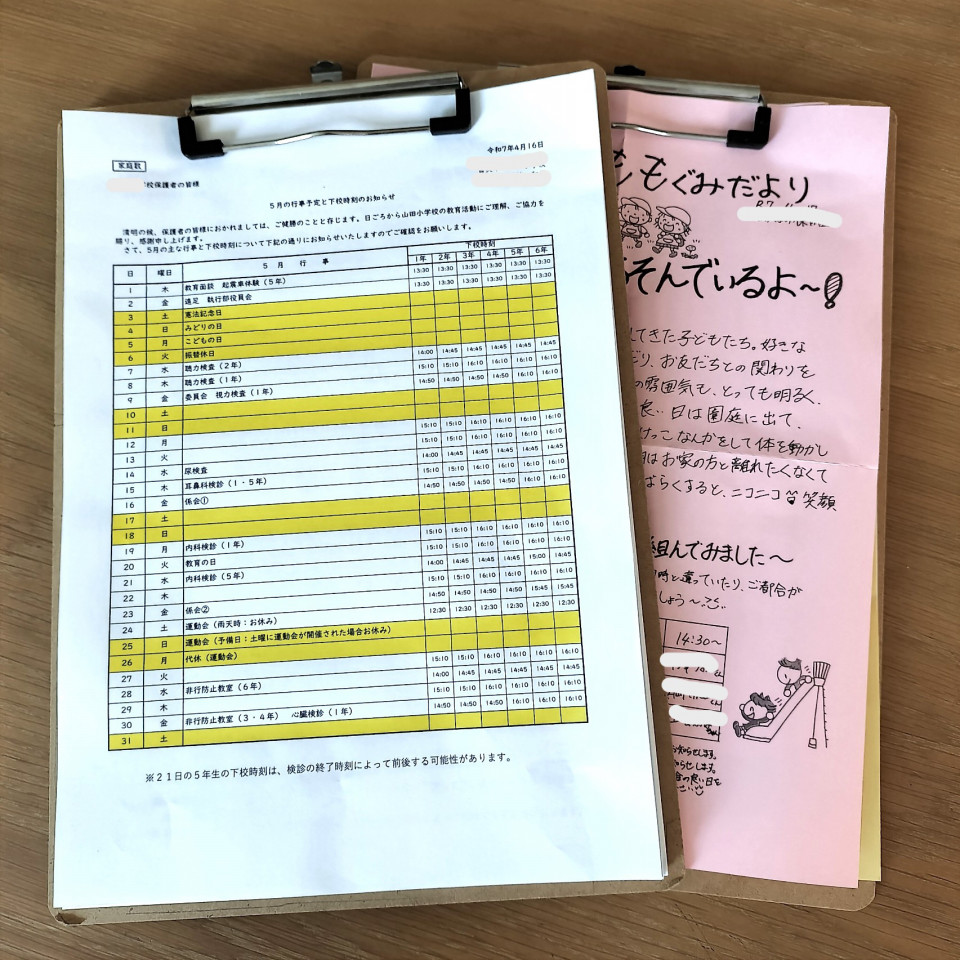 令和7年4月16日
家庭数
校保護者の皆様
5月の行事予定と下校時刻のお知らせ
清明の候、保護者の皆様におかれましては、ご健勝のことと存じます。日ごろから山田小学校の教育活動にご理解、ご協力を
賜り、感謝申し上げます。
さて、5月の主な行事と下校時刻について下記の通りにお知らせいたしますのでご確認をお願いします。
日 曜日 5月 行事 下校時刻
1年 2年 3年 4年 5年 6年
1 木 教育面談 起震車体験(5年) 13:30 13:30 13:30 13:30 13:30 13:30
2 金 遠足 執行部役員会 13:30 13:30 13:30 13:30 13:30 13:30
3 土 憲法記念日
4 日 みどりの日
5 月 こどもの日
6 火 振替休日
7 水 聴力検査(2年) 14:00 14:45 14:45 14:45 14:45 14:45
8 木 聴力検査(1年) 15:10 15:10 16:10 16:10 16:10 16:10
9 金 委員会 視力検査(1年) 14:50 14:50 14:50 16:10 16:10 16:10
10 土
11 日
12 月 15:10 15:10 16:10 16:10 16:10 16:10
13 火 15:10 15:10 16:10 16:10 16:10 16:10
14 水 尿検査 14:00 14:45 14:45 14:45 14:45 14:45
15 木 耳鼻科検診(1・5年) 15:10 15:10 16:10 16:10 16:10 16:10
16 金 係会① 14:50 14:50 14:50 16:10 16:10 16:10
17 土
18 日
19 月 内科検診(1年) 15:10 15:10 16:10 16:10 16:10 16:10
20 火 教育の日 15:10 15:10 16:10 16:10 16:10 16:10
21 水 内科検診(5年) 14:00 14:45 14:45 14:45 15:00 14:45
22 木 15:10 15:10 16:10 16:10 16:10 16:10
23 金 係会② 14:50 14:50 14:50 15:45 15:45
24 土 運動会(雨天時:お休み) 12:30 12:30 12:30 12:30 12:30 12:30
25 日 運動会(予備日:土曜に運動会が開催された場合お休み)
26 月 代休(運動会)
27 火 15:10 15:10 16:10 16:10 16:10 16:10
28 水 非行防止教室(6年) 14:00 14:45 14:45 14:45 14:45 14:45
29 木 15:10 15:10 16:10 16:10 16:10 16:10
30 金 非行防止教室(3・4年) 心臓検診(1年) 14:50 14:50 14:50 16:10 16:10 16:10
31 土
※21日の5年生の下校時刻は、検診の終了時刻によって前後する可能性があります。
ももぐみだより
そんでいるよ～!
してきた子どもたち。好きな
り、お友だちとの関わりを
の雰囲気も、とっても明るく、
良い日は園庭に出て、
けっこなんかをして体を動かし
はお家の方と離れたくなくて
ばらくすると、ニコニコ笑顔
組んでみました～
時と違っていたり、ご都合が
しょう～
14:30～
お知らせします。
知らせします。
の良い日を